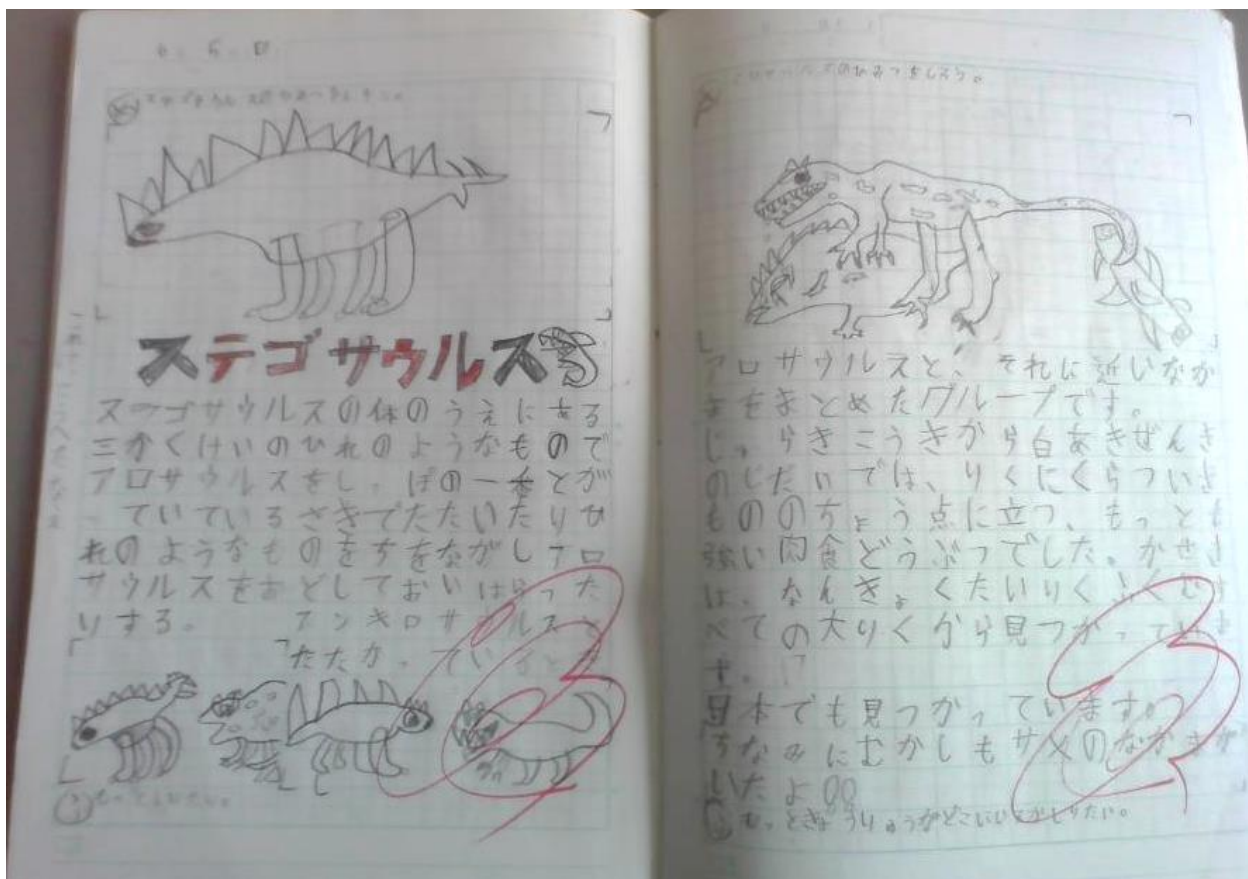 ステゴサウルス
ステゴサウルスの体のうえにある
三かくけいのひれのようなもので
アロサウルスをし、ぽの一番とが
っていているさきでたたいたりひ
れのようなものをちをながしアロ
サウルスをおどしておいはらった
りする。 アンキロサウルスと
たたかっている
もっとしりたい。
のひみつをしろう。
アロサウルスと、それに近いなか
まをまとめたグループです。
じゅらきこうきから白あきぜんき
のじだいでは、りくにくらついき
もののちょう点に立つ、もっとも
強い肉食どうぶつでした。かせき
は、なんきょくたいりくふくむす
べての大りくから見つかっていま
す。
日本でも見つかっています。
ちなみにむかしもサメのなかまが
いたよ
もっときょうりゅうがどこいい しりたい。